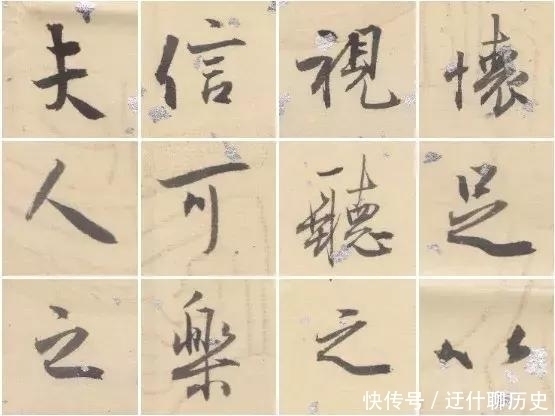 懷足以
視聽之
信可樂
夫人之
快传号 / 迂什聊历史